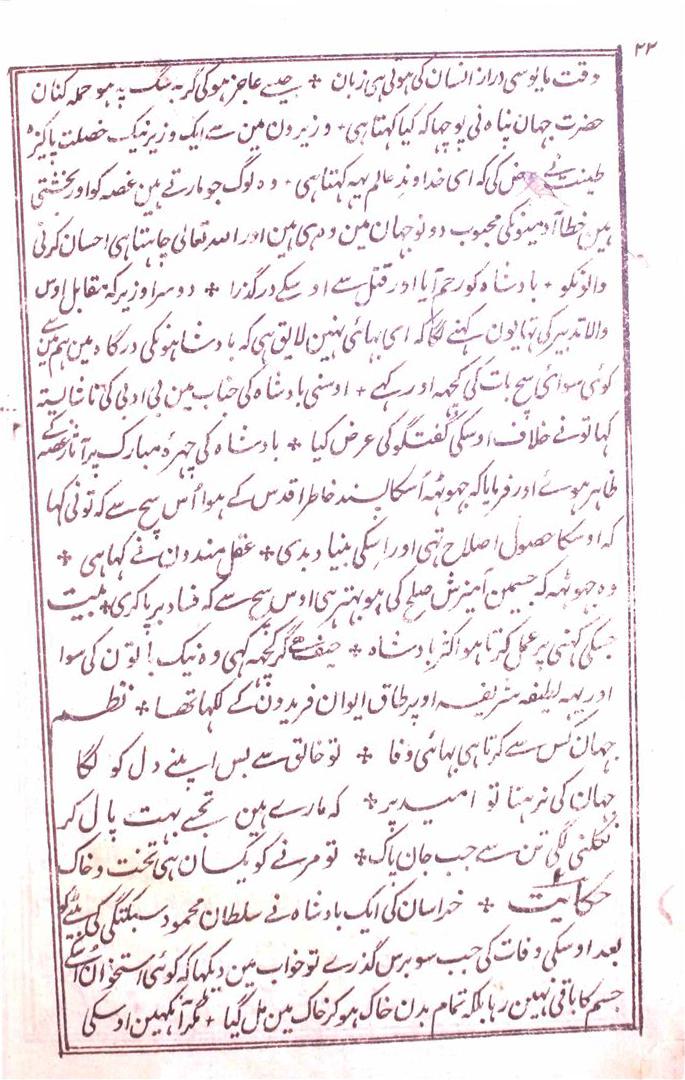 ۲۲
وقت مایوسی دراز انسان کی ہوتی ہی زبان + جیسے عاجز ہو کی گربہ سگ پہ ہو حملہ کنان
حضرت جہان پناہ نی پوچہا کہ کیا کہتا ہی + وزیرون مین سے ایک وزیر نیک خصلت پاکیزہ
طینت نے عرض کی کہ ای خداوند عالم یہہ کہتا ہی + وہ لوگ جو مارتے ہین غصہ کو اور بخشتی
ہین خطا آدمیونکی محبوب دونو جہان مین وہی ہین اور اللہ تعالی چاہتا ہی احسان کرنی
والونکو + بادشاہ کو رحم آیا اور قتل سے اوسکے درگذرا + دوسرا وزیر کہ مقابل اوس
والا تدبیر کی تہا یون کہنے لگا کہ ای بہائی نہین لایق ہی کہ بادشاہونکی درگاہ مین ہم مین سے
کوئی سوائی سچ بات کی کچہہ اور کہے + اوسنی بادشاہ کی جناب مین بی ادبی کی ناشایستہ
کہا تونے خلاف اوسکی گفتگو کی عرض کیا + بادشاہ کی چہرہ مبارک پر آثار غصہ کے
ظاہر ہوئے اور فرمایا کہ جہوٹہہ اُسکا پسند خاطر اقدس کے ہوا اُس سچ سے کہ تونی کہا
کہ اوسکا حصول اصلاح تہی اور اِسکی بنیاد بدی + عقلمندون نے کہا ہی +
وہ جہوٹہہ کہ جسمین آمیزش صلح کی ہو بہتر ہی اوس سچ سے کہ فساد برپا کری + بیت
جسکی کہنی پر عمل کرتا ہو اکثر بادشاہ + حیف ہے گر کچہہ کہی وہ نیک باتون کی سوا
اور یہہ لطیفہ شریفہ اوپر طاق ایوان فریدون کے لکہا تھا + نظم
جہان کس سے کرتا ہی بہائی وفا + تو خالق سے بس اپنے دل کو لگا
جہان کی نہ رہنا تو امید پر + کہ مارے ہین تجسے بہت پال کر
نکلنی لگی تن سے جب جان پاک + تو مرنے کو یکسان ہی تخت و خاک
حکایت + خراسان کی ایک بادشاہ نے سلطان محمود سبکتگی کی بیٹے کو
بعد اوسکی وفات کی جب سو برس گذرے تو خواب مین دیکہا کہ کوئی استخوان اُسکے
جسم کا باقی نہین رہا بلکہ تمام بدن خاک ہو کر خاک مین مل گیا + مگر آنکہین اوسکی